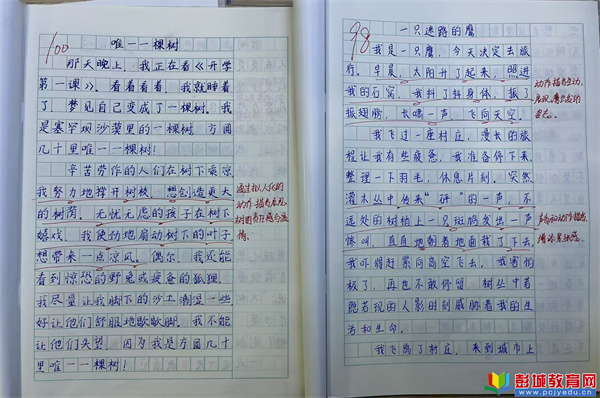 100
唯一一棵树
那天晚上，我正在看《开学
第一课》，看着看着，我就睡着
了，梦见自己变成了一棵树。我
是塞罕坝沙漠里的一棵树，方圆
几十里唯一一棵树！
辛苦劳作的人们在树下乘凉，
我努力地撑开树枝，想创造更大
的树荫，无忧无虑的孩子在树下
嬉戏，我使劲地扇动树下的叶子
想带来一点凉风，偶尔，我还能
看到惊恐的野兔或疲惫的狐狸，
我尽量让我脚下的沙土潮湿一些
好让他们舒服地歇歇脚，我不能
让他们失望，因为我是方圆几十
里唯一一棵树！
通过拟人化的
动作描写表现
树
98
一只迷路的鹰
我是一只鹰，今天决定去旅
行，早晨，太阳升了起来，照进
我的石窝，我抖了抖身体，振了
振翅膀，长鸣一声，飞向天空。
我飞过一座村庄，漫长的旅
程让我有些疲惫，我准备停下来
整理一下羽毛，休息片刻，突然
灌木丛中传来“砰”的一声，不
远处的树梢上一只斑鸠发出一声
惨叫，直直地朝着地面栽了下去，
我吓得赶紧向高空飞去，我害怕
极了，再也不敢停留，树丛中若
隐若现的人影时刻威胁着我的生
活和生命。
我飞离了村庄，来到城市上
动作描写生动，
声音和动作描写
增添紧张感
彭城教育网
www.pcjyedu.cn